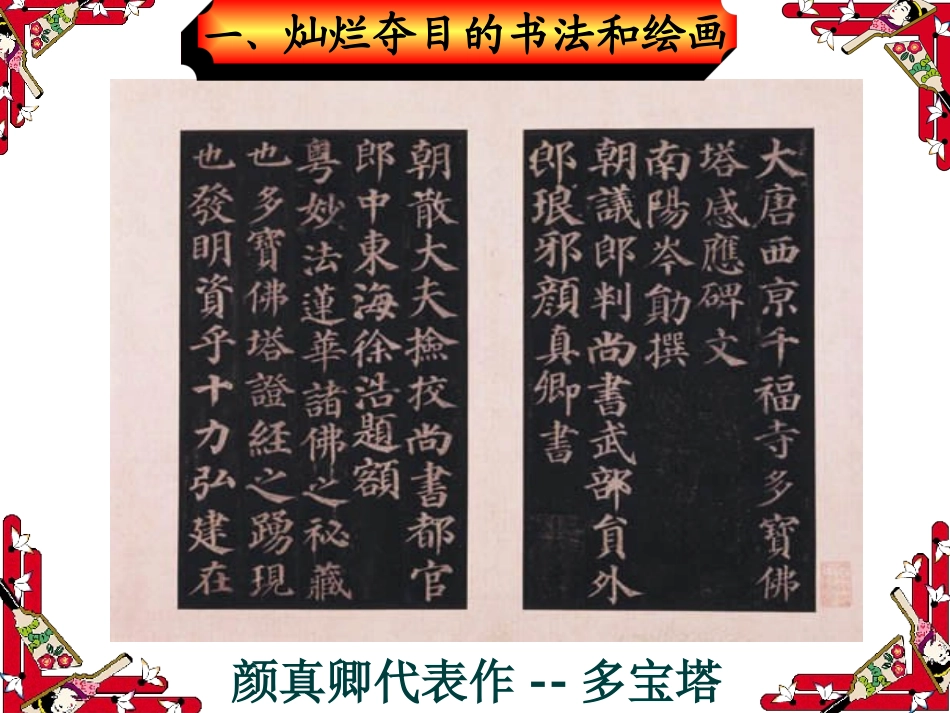 一、灿烂夺目的书法和绘画
大唐西京千福寺多寶佛
塔感應碑文
南陽岑勛撰
朝議郎判尚書武部貟外
郎琅邪顏真卿書
朝散大夫撿校尚書都官
郎中東海徐浩題額
粵妙法蓮華諸佛之祕藏
也多寶佛塔證經之踴現
也發明資乎十力弘建在
颜真卿代表作 -- 多宝塔